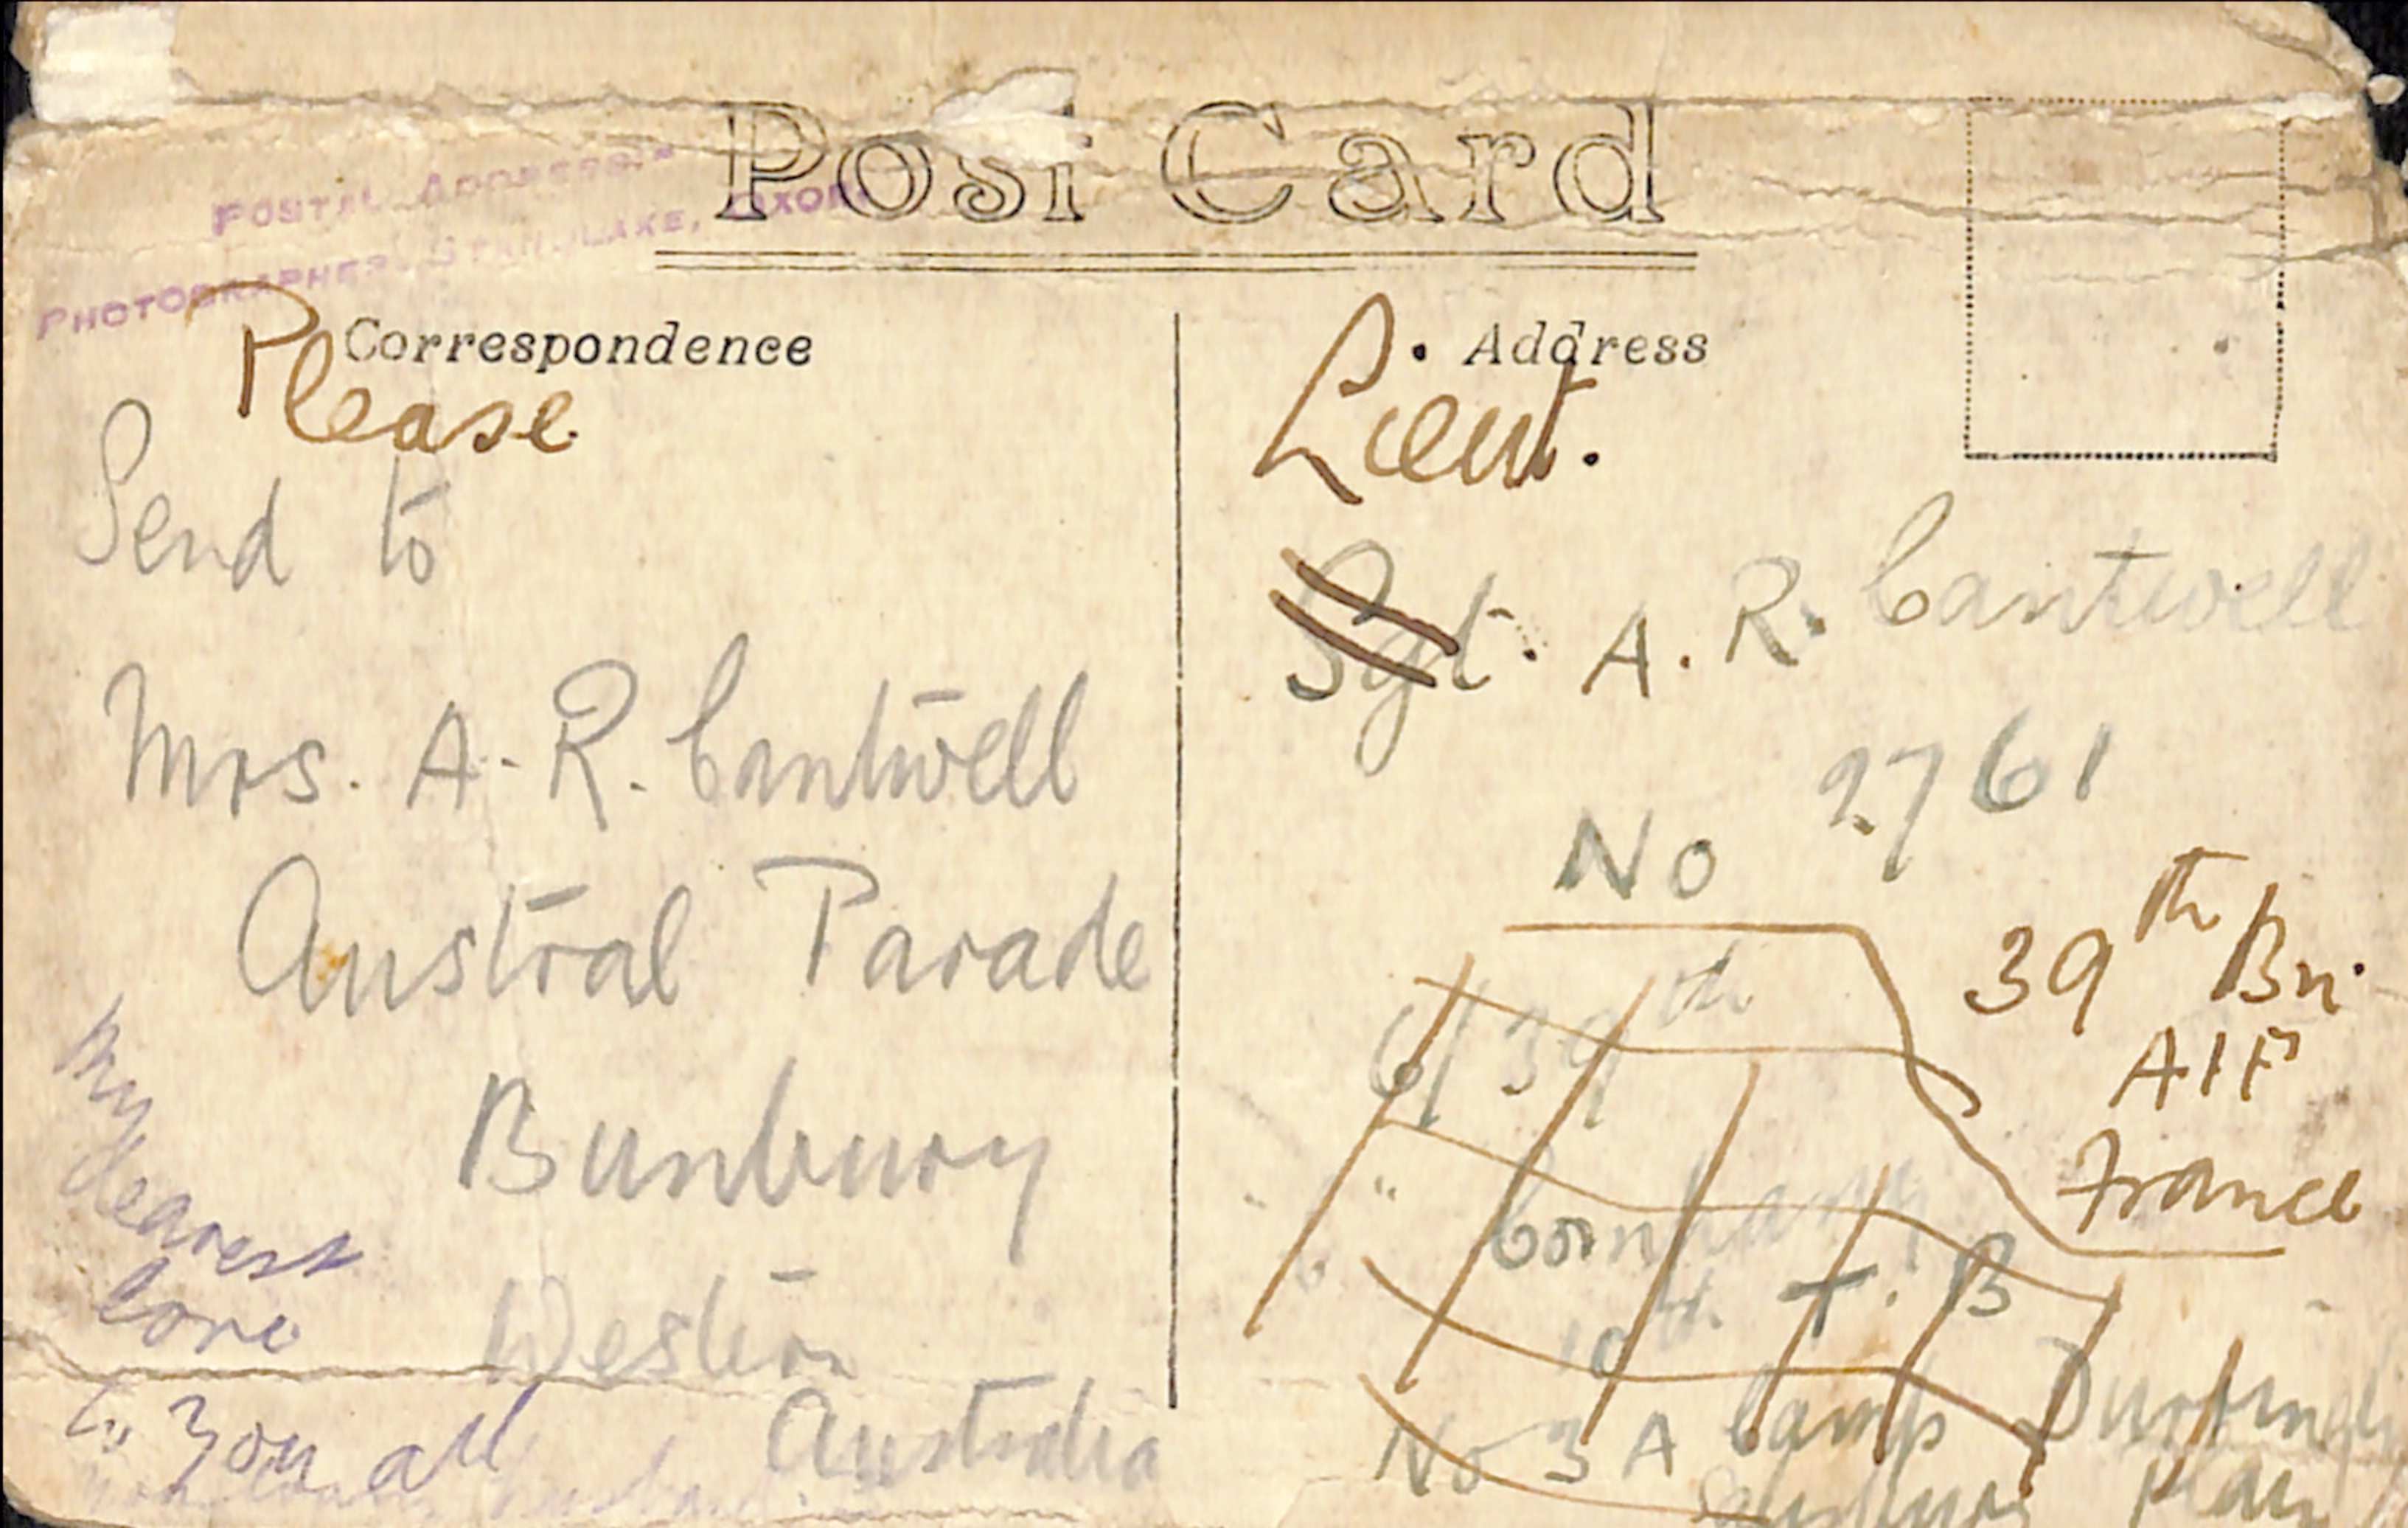 Post Card
POSTAL ADDRESS:-
PHOTOGRAPHER, STANDLAKE, OXON
Correspondence
Please
Send to
Mrs. A. R. Cantwell
Austral Parade
Bunbury
Western
Australia
My
dearest
love
to you all
Address
Lieut.
Sgt. A. R. Cantwell
No 2761
39th Bn.
AIF
France
6/39th
" Company
10th T. B
No 3 A Camp Durrington
Salisbury Plain